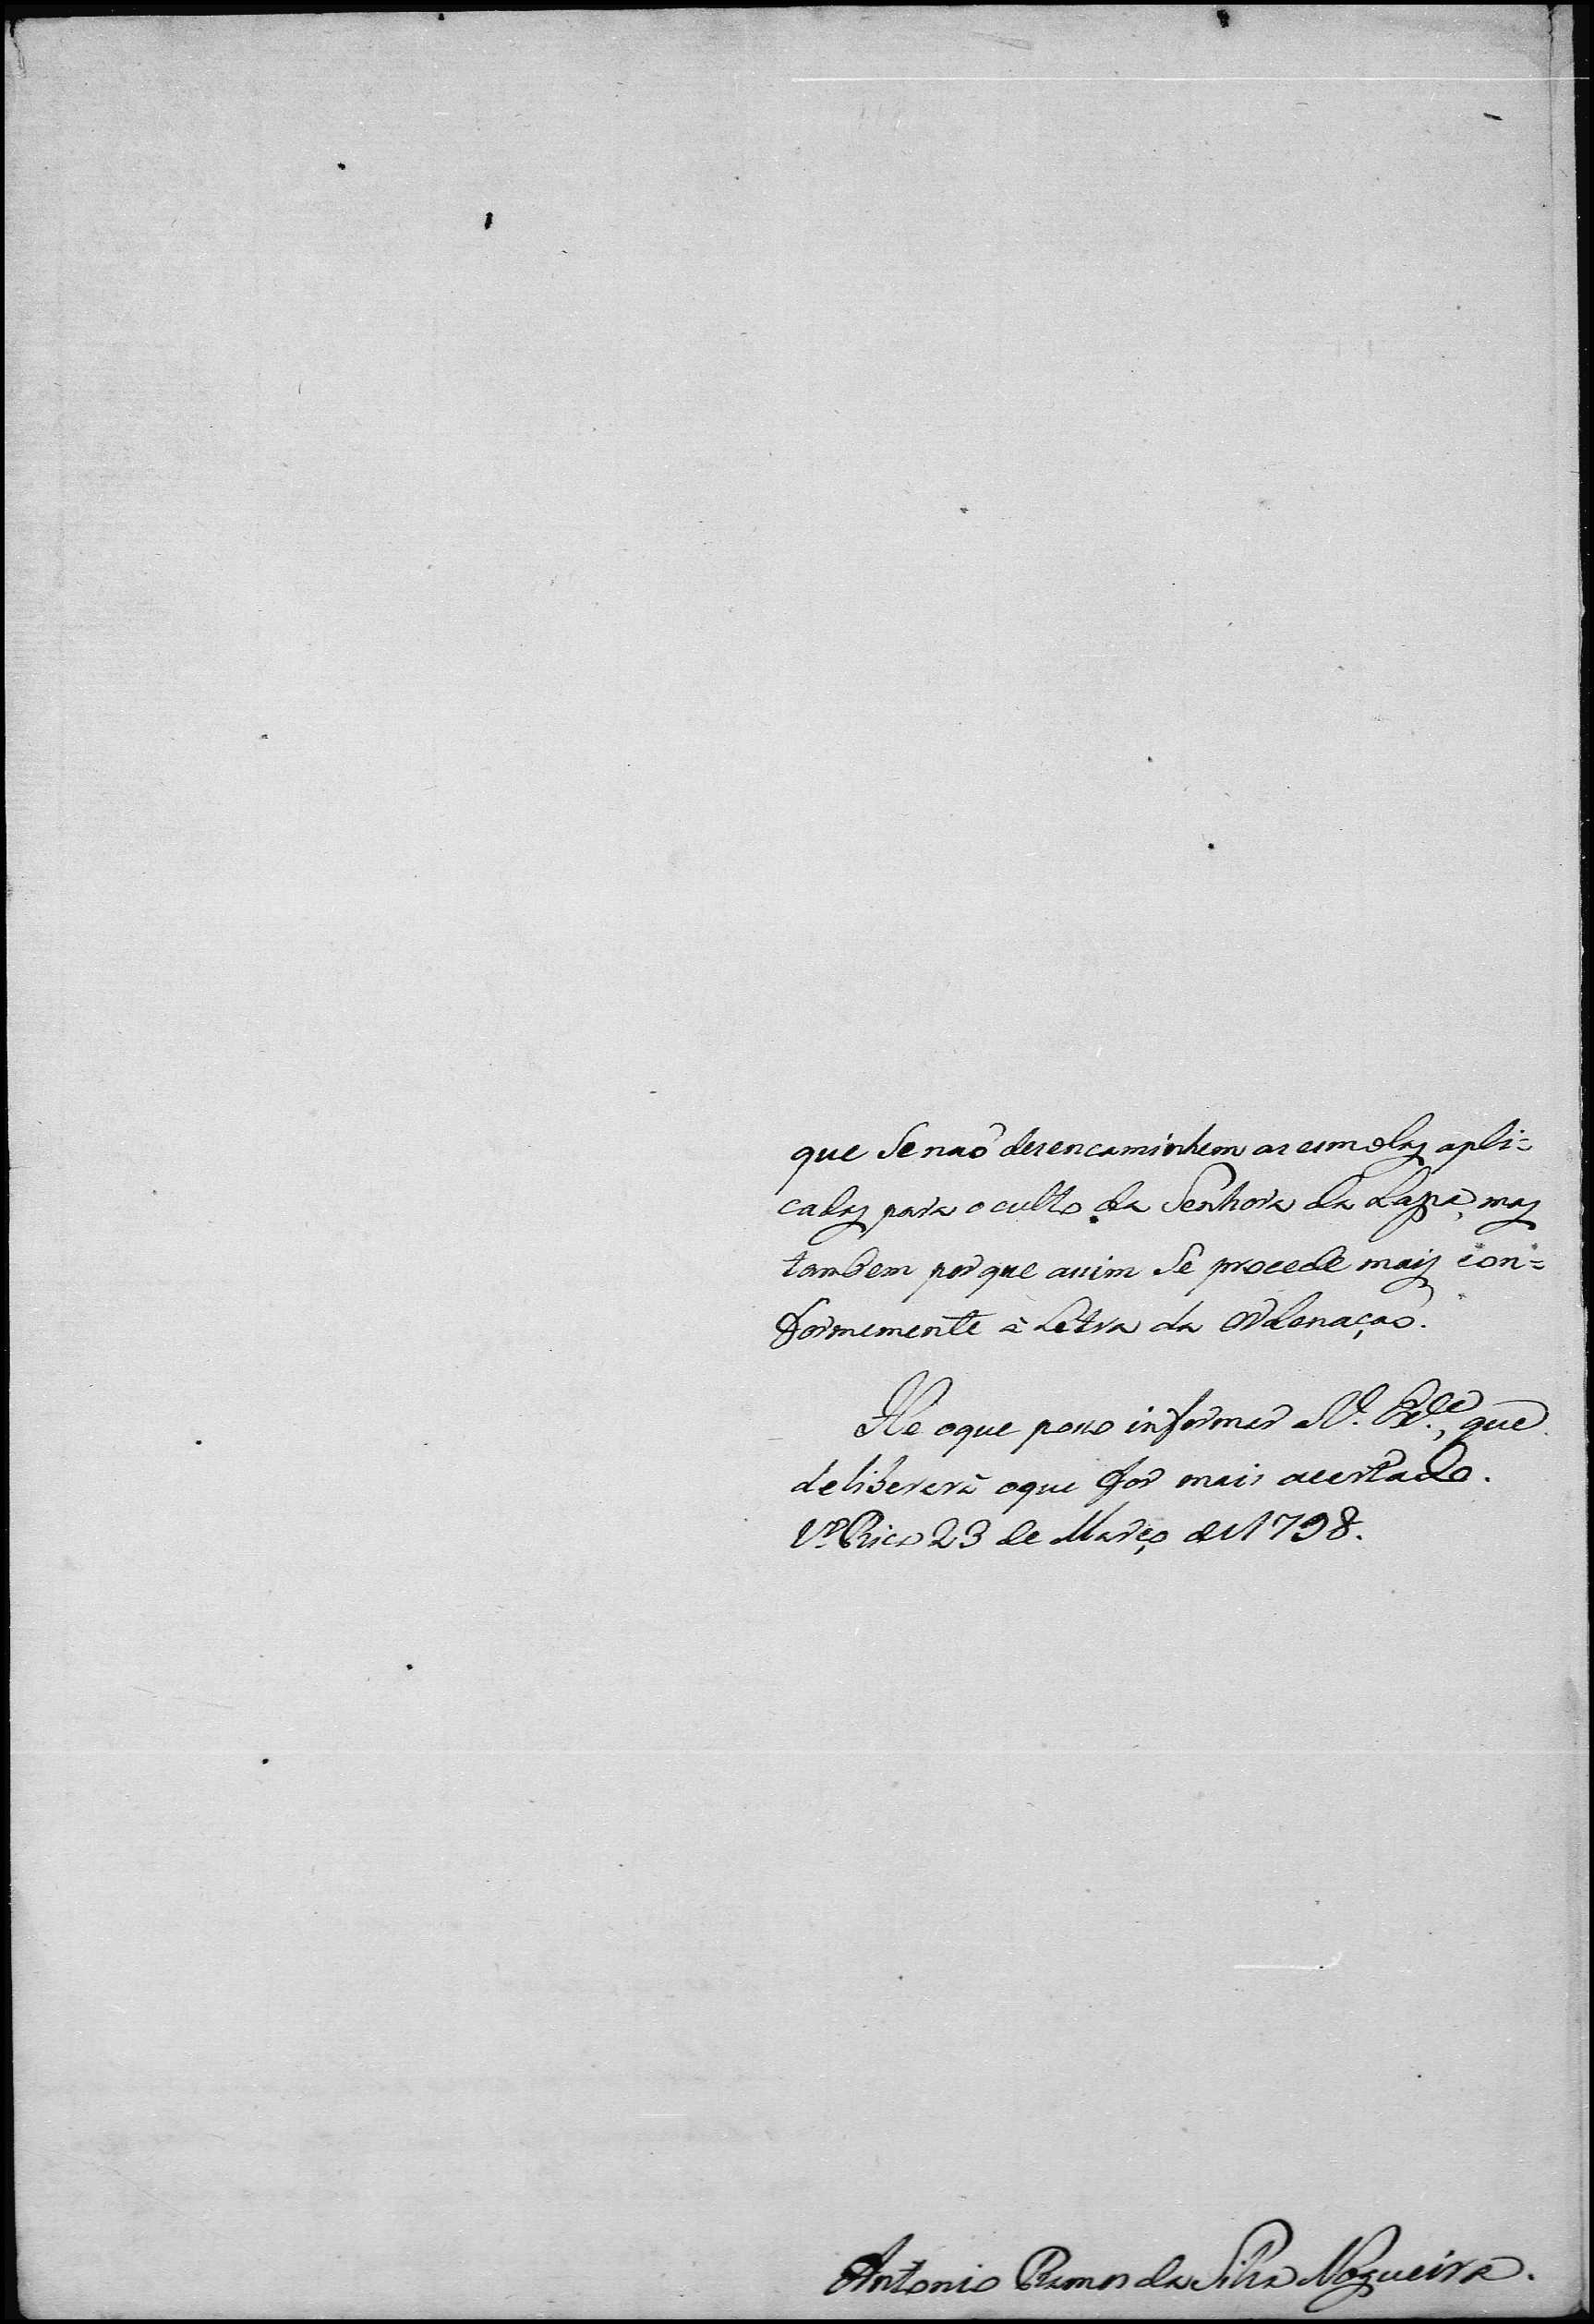 que Se naõ desencaminhem as esmolas apli=
cadas para o culto da Senhora da Lapa, mas
tambem porque assim Se procede mais con=
formemente á Letra da Ordenaçaõ.
He oque posso informar a V. Ex.ᶜⁱᵃ, que
deliberará oque for mais acertado.
Vᵃ Rica 23 de Março de 1798.
Antonio Ramos da Silva Nogueira.